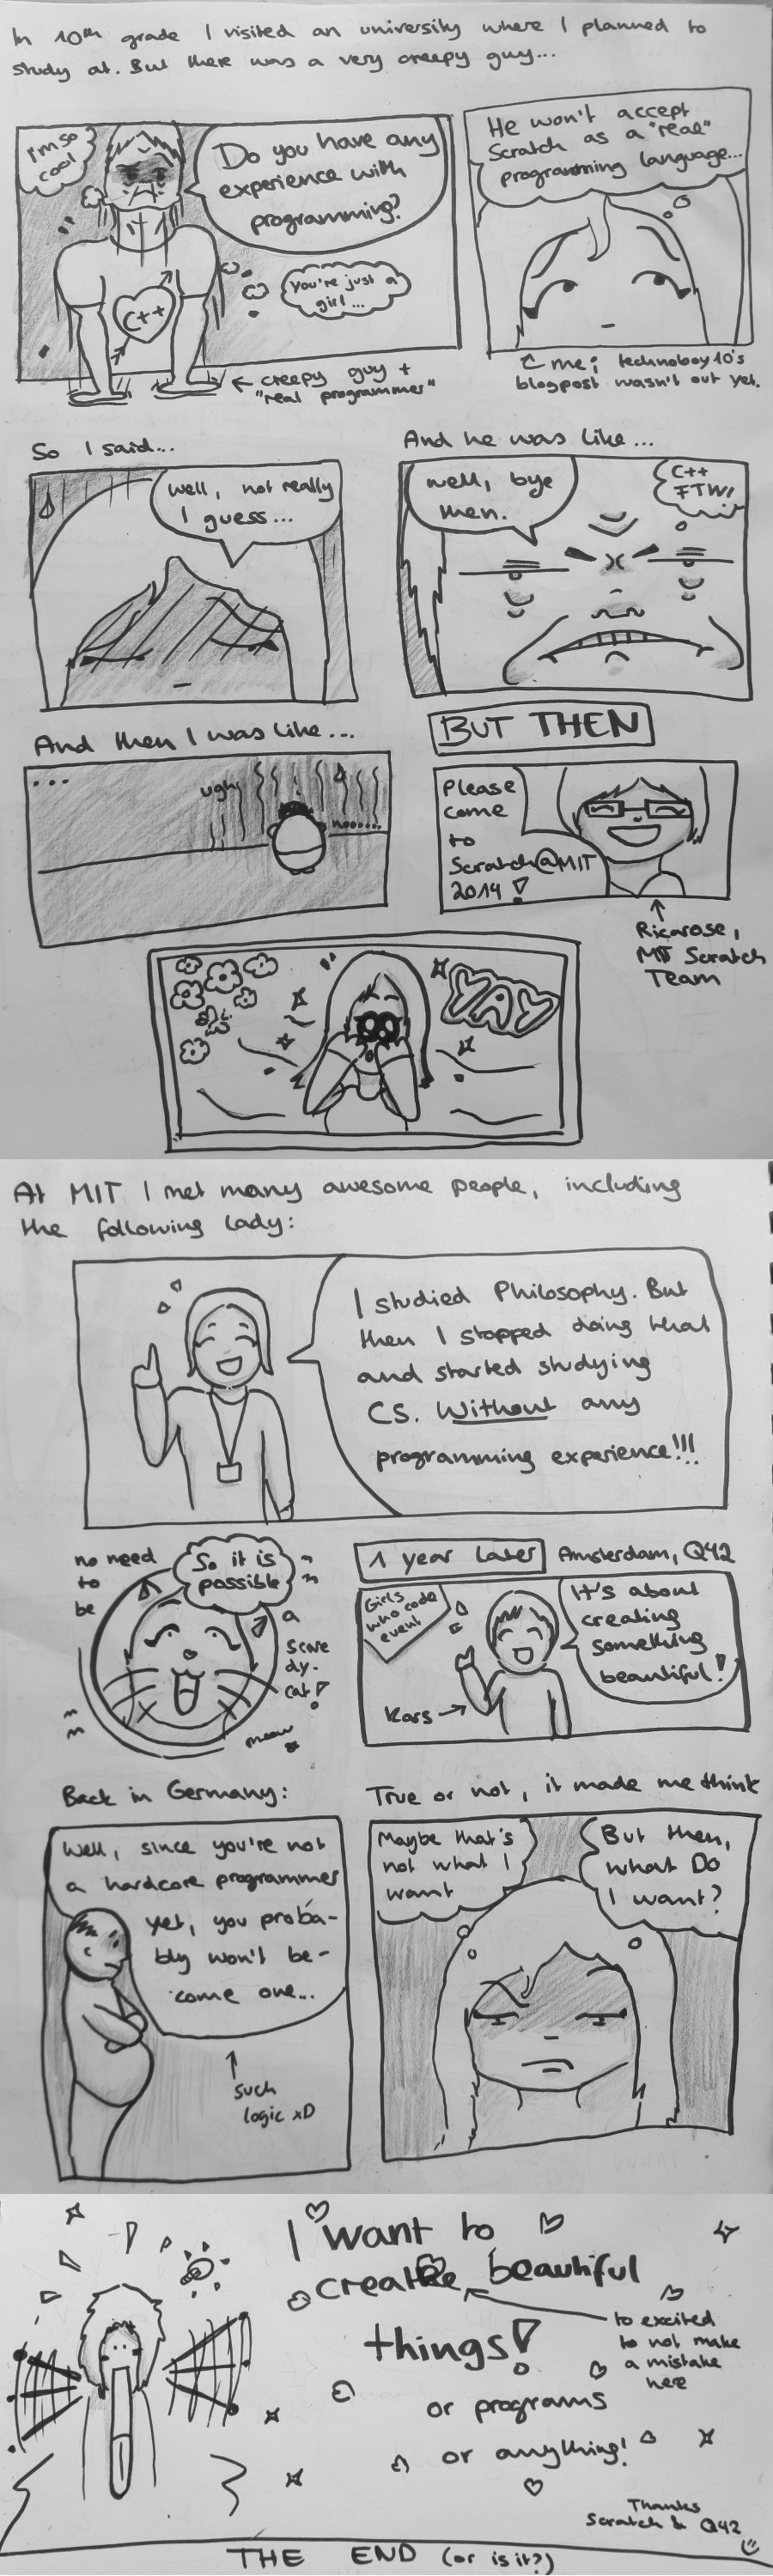 In 10th grade I visited an university where I planned to
study at. But there was a very creepy guy...
I'm so
cool
Do you have any
experience with
programming?
C++
You're just a
girl...
creepy guy +
"real programmer"
He won't accept
Scratch as a "real"
programming language...
me; technoboy10's
blogpost wasn't out yet.
So I said...
Well, not really
I guess...
And he was like...
Well, bye
then.
C++
FTW!
And then I was like...
...
ugh
nooo.....
BUT THEN
Please
come
to
Scratch@MIT
2014!
Ricarose,
MIT Scratch
Team
YAY
At MIT I met many awesome people, including
the following lady:
I studied Philosophy. But
then I stopped doing that
and started studying
CS. Without any
programming experience!!!
no need
to
be
a
scare
dy-
cat!
So it is
possible
meow
1 year later
Amsterdam, Q42
Girls
who code
event
It's about
creating
something
beautiful!
Kars
Back in Germany:
Well, since you're not
a hardcore programmer
yet, you proba-
bly won't be-
come one...
such
logic xD
True or not, it made me think
Maybe that's
not what I
want
But then,
what DO
I want?
I want to
create beautiful
things!
to excited
to not make
a mistake
here
or programs
or anything!
Thanks
Scratch & Q42
THE END (or is it?)